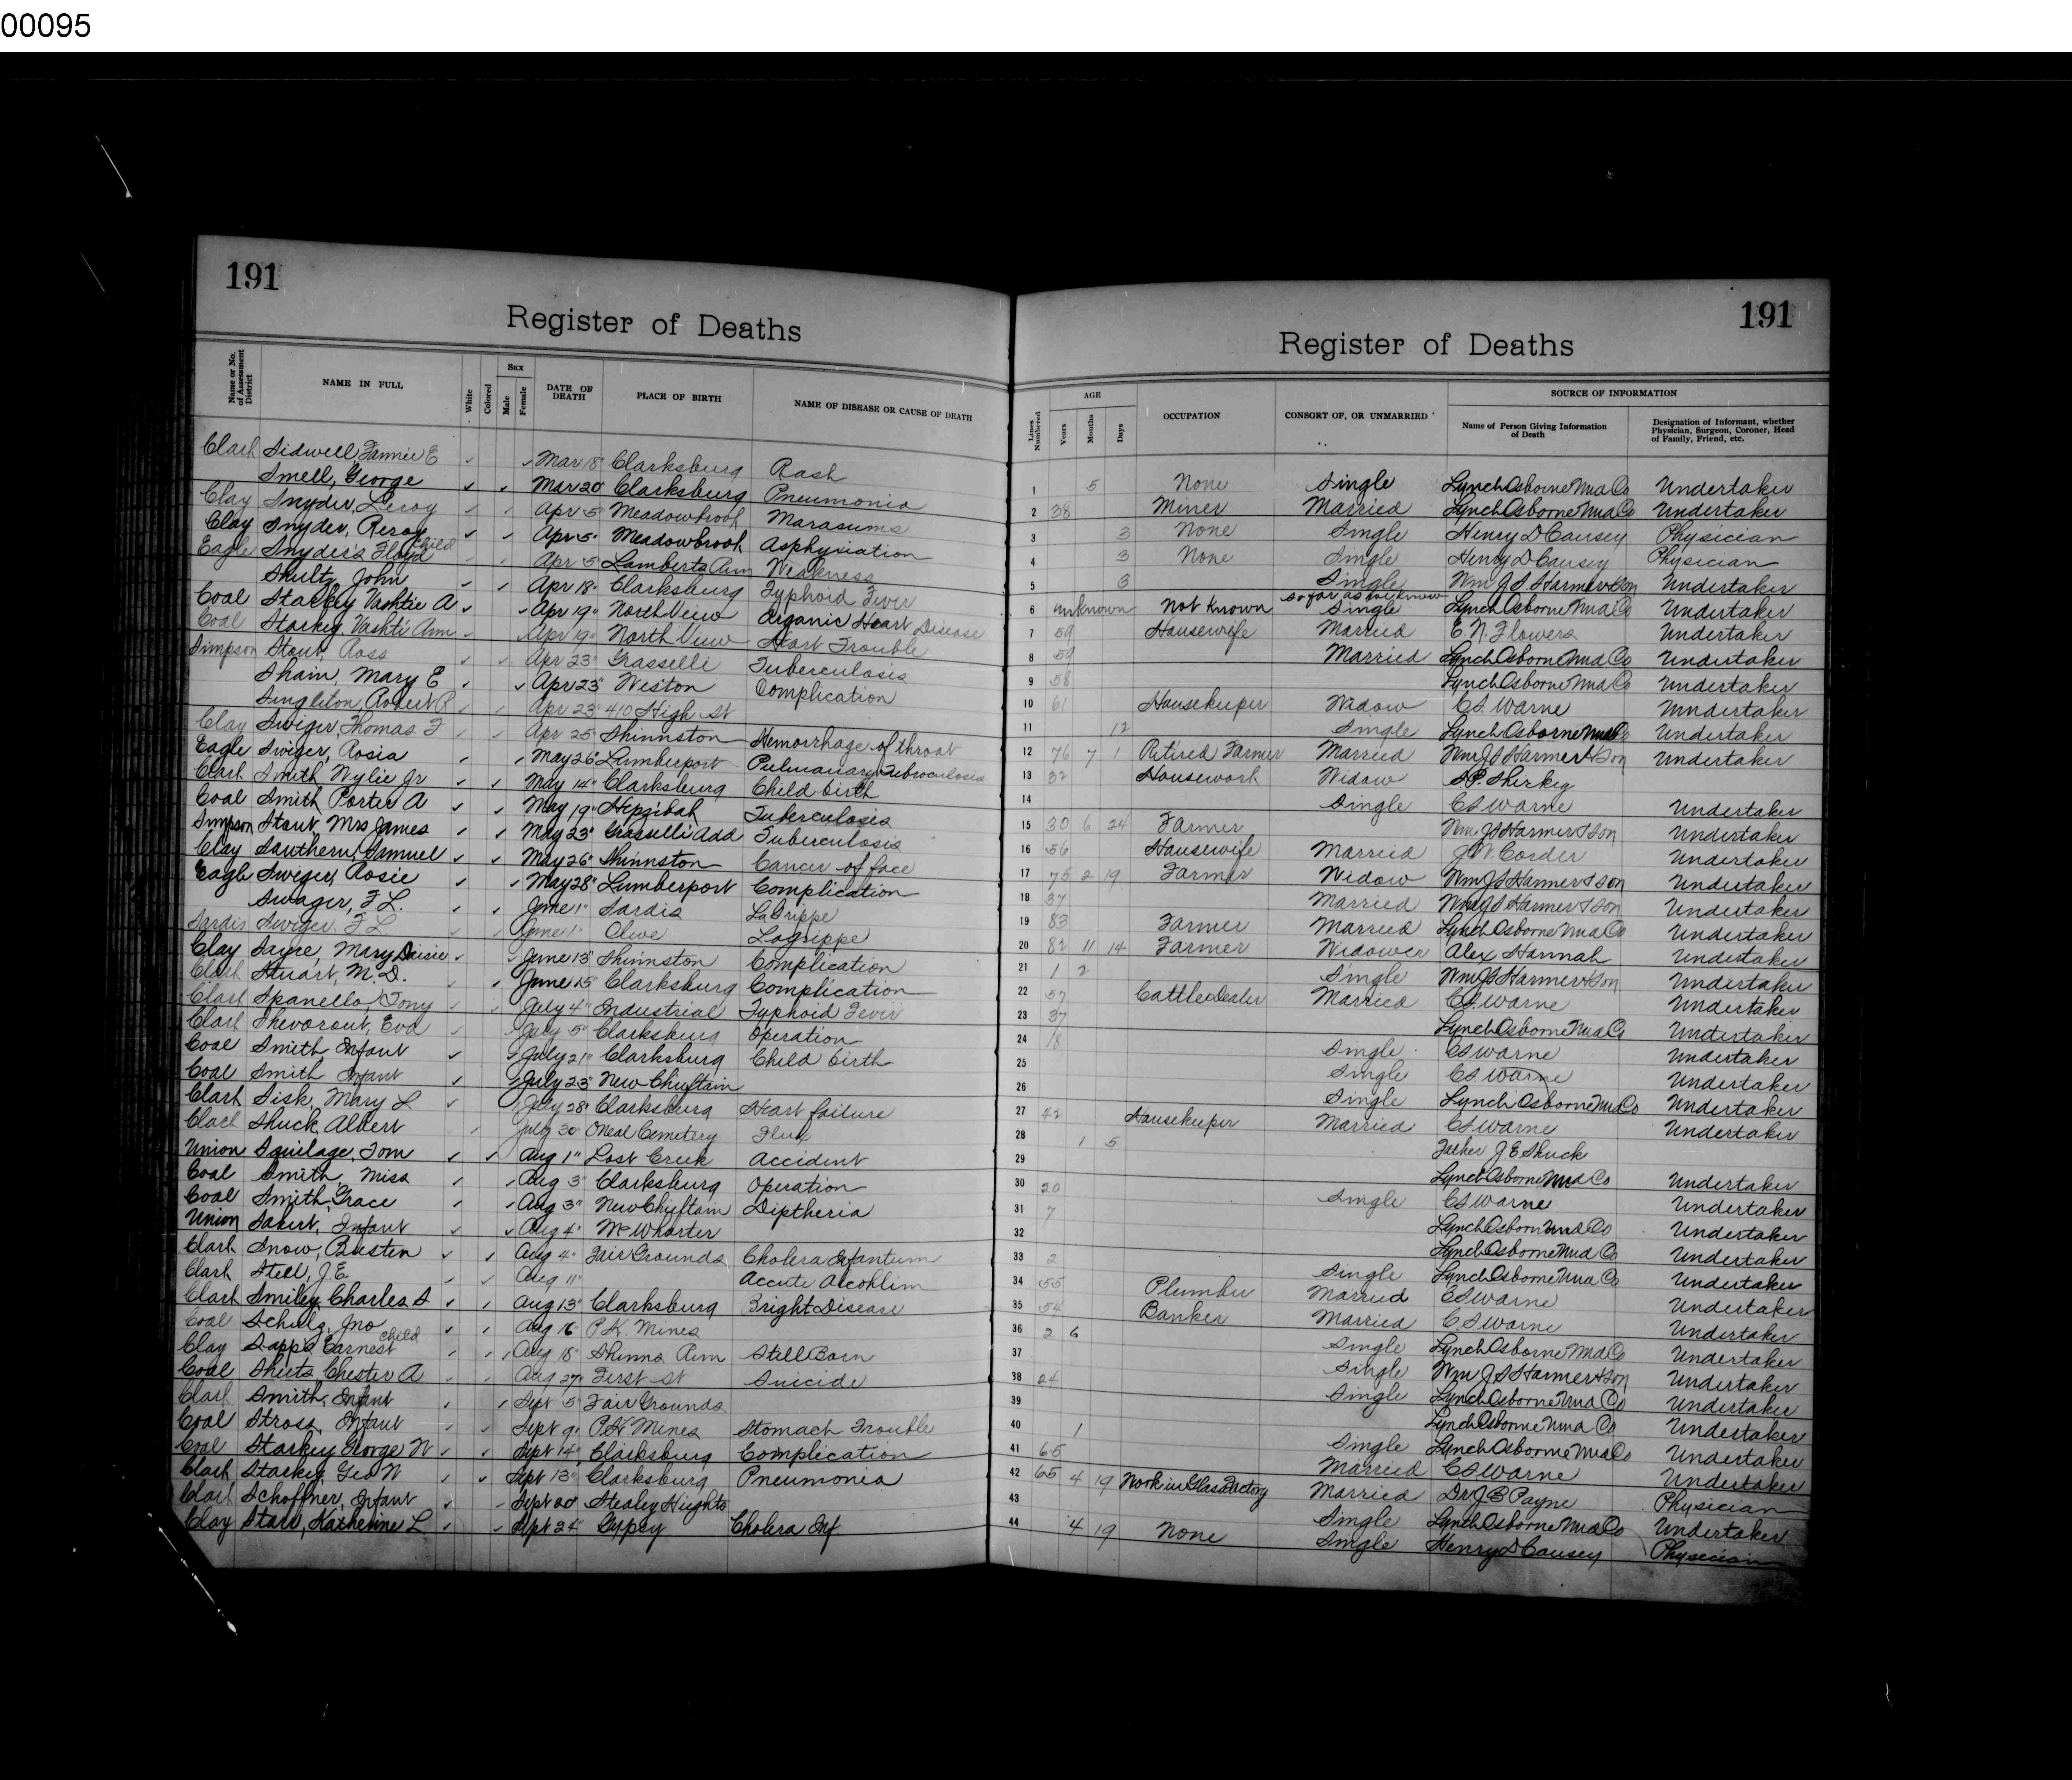 00095
191
Register of Deaths
Name or No. of Assessment District NAME IN FULL White Colored SEX Male Female DATE OF DEATH PLACE OF BIRTH NAME OF DISEASE OR CAUSE OF DEATH
Clark Sidwell Fannie E Mar 18" Clarksburg Rash
Smell, George Mar 20 Clarksburg Pneumonia
Clay Snyder, Leroy Apr 5 Meadowbrook Marasums
Clay Snyder, Reroy Apr 5" Meadowbrook Asphyxiation
Eagle Snyders Floyd child Apr 5" Lamberts Run Weakness
Shultz, John Apr 18" Clarksburg Typhoid Fever
Coal Starkey Vashtie A Apr 19" North View Organic Heart Disease
Coal Starkey, Vashti Ann Apr 19" North View Heart Trouble
Simpson Stout, Ross Apr 23" Grasselli Tuberculosis
Shain, Mary E Apr 23" Weston Complication
Singleton, Robert R Apr 23" 410 High St
Clay Swiger, Thomas F Apr 25" Shinnston Hemorrhage of throat
Eagle Swiger, Rosia May 26" Lumberport Pulmanary Tuberculosis
Clark Smith, Wylie Jr May 14" Clarksburg Child birth
Coal Smith Porter A May 19" Hepzibah Tuberculosis
Simpson Stout Mrs James May 23" Grasselli Add Tuberculosis
Clay Southern, Samuel May 26" Shinnston Cancer of face
Eagle Swiger, Rosie May 28" Lumberport Complication
Swager, F L. June 1" Sardis LaGrippe
Sardis Swiger, F L June 1" Olive Lagrippe
Clay Sayre, Mary Daisie June 13" Shinnston Complication
Clark Stuart, M. D. June 15" Clarksburg Complication
Clark Spanello, Tony July 4" Industrial Typhoid Fever
Clark Eva July 5" Clarksburg Operation
Coal Smith Infant July 21" Clarksburg Child birth
Coal Smith Infant July 23" New Chieftain
Clark Sisk, Mary L July 28" Clarksburg Heart failure
Clark Shuck, Albert July 30" ONeal Cemetery Flux
Union Squilage, Tom Aug 1" Lost Creek Accident
Coal Smith, Miss Aug 3" Clarksburg Operation
Coal Smith, Grace Aug 3" New Chieftain Diptheria
Union Infant Aug 4" McWhorter
Clark Snow, Busten Aug 4" Fair Grounds Cholera Infantum
Clark Stell, J. E. Aug 11" Accute Alcohlim
Clark Smiley, Charles S Aug 13" Clarksburg Bright Disease
Coal Schulz, Jno Aug 16" P.H. Mines
Clay Sapps Earnest child Aug 18" Shinns Run Still Born
Coal Sheets, Chester A Aug 27" First St Suicide
Clark Smith, Infant Sept 5" Fair Grounds
Coal Stross, Infant Sept 9" P.H Mines Stomach Trouble
Coal Starkey George W Sept 14" Clarksburg Complication
Clark Starkey, Geo W Sept 13" Clarksburg Pneumonia
Clark Schoffner, Infant Sept 20" Stealey Heights
Clay Starr, Katherine L Sept 24" Gypsy Cholera Inf
191
Register of Deaths
Lines Numbered AGE Years Months Days OCCUPATION CONSORT OF, OR UNMARRIED SOURCE OF INFORMATION
Name of Person Giving Information of Death Designation of Informant, whether Physician, Surgeon, Coroner, Head of Family, Friend, etc.
1 5 None Single Lynch Osborne Mud Co Undertaker
2 38 Miner Married Lynch Osborne Mud Co Undertaker
3 3 None Single Henry D Causey Physician
4 3 None Single Henry D Causey Physician
5 3 Single Wm J S Harmer & Son Undertaker
6 unknown Not known so far as we know Single Lynch Osborne Mud Co Undertaker
7 59 Housewife Married E. N. Flowers Undertaker
8 59 Married Lynch Osborne Mud Co Undertaker
9 58 Lynch Osborne Mud Co Undertaker
10 61 Housekeeper Widow C S. Warne Undertaker
11 12 Single Lynch Osborne Mud Co Undertaker
12 76 7 1 Retired Farmer Married Wm J S Harmer & Son Undertaker
13 32 Housework Widow S.P. Shirkey
14 Single C S Warne Undertaker
15 30 6 24 Farmer Wm J S Harmer & Son Undertaker
16 56 Housewife Married J. W. Corder Undertaker
17 75 2 19 Farmer Widow Wm J S Harmer & Son Undertaker
18 37 Married Wm J S Harmer & Son Undertaker
19 83 Farmer Married Lynch Osborne Mud Co Undertaker
20 82 11 14 Farmer Widower Alex Hannah Undertaker
21 1 2 Single Wm J S Harmer & Son Undertaker
22 57 Cattle Dealer Married C S. Warne Undertaker
23 37 Lynch Osborne Mud Co Undertaker
24 18 Single C S Warne Undertaker
25 Single C S. Warne Undertaker
26 Single Lynch Osborne Mud Co Undertaker
27 42 Housekeeper Married C S Warne Undertaker
28 1 5 Father J E Shuck
29 Lynch Osborne Mud Co Undertaker
30 20 Single C S Warne Undertaker
31 7 Lynch Osborn Mud Co Undertaker
32 Lynch Osborne Mud Co Undertaker
33 2 Single Lynch Osborne Mud Co Undertaker
34 55 Plumber Married C S Warne Undertaker
35 54 Banker Married C. S Warne Undertaker
36 2 6 Single Lynch Osborne Mud Co Undertaker
37 Single Wm J S Harmer & Son Undertaker
38 24 Single Lynch Osborne Mud Co Undertaker
39 Lynch Osborne Mud Co Undertaker
40 1 Single Lynch Osborne Mud Co Undertaker
41 65 Married C S Warne Undertaker
42 65 4 19 Work in Glass Factory Married Dr J B Payne Physician
43 Single Lynch Osborne Mud Co Undertaker
44 4 19 None Single Henry D Causey Physician